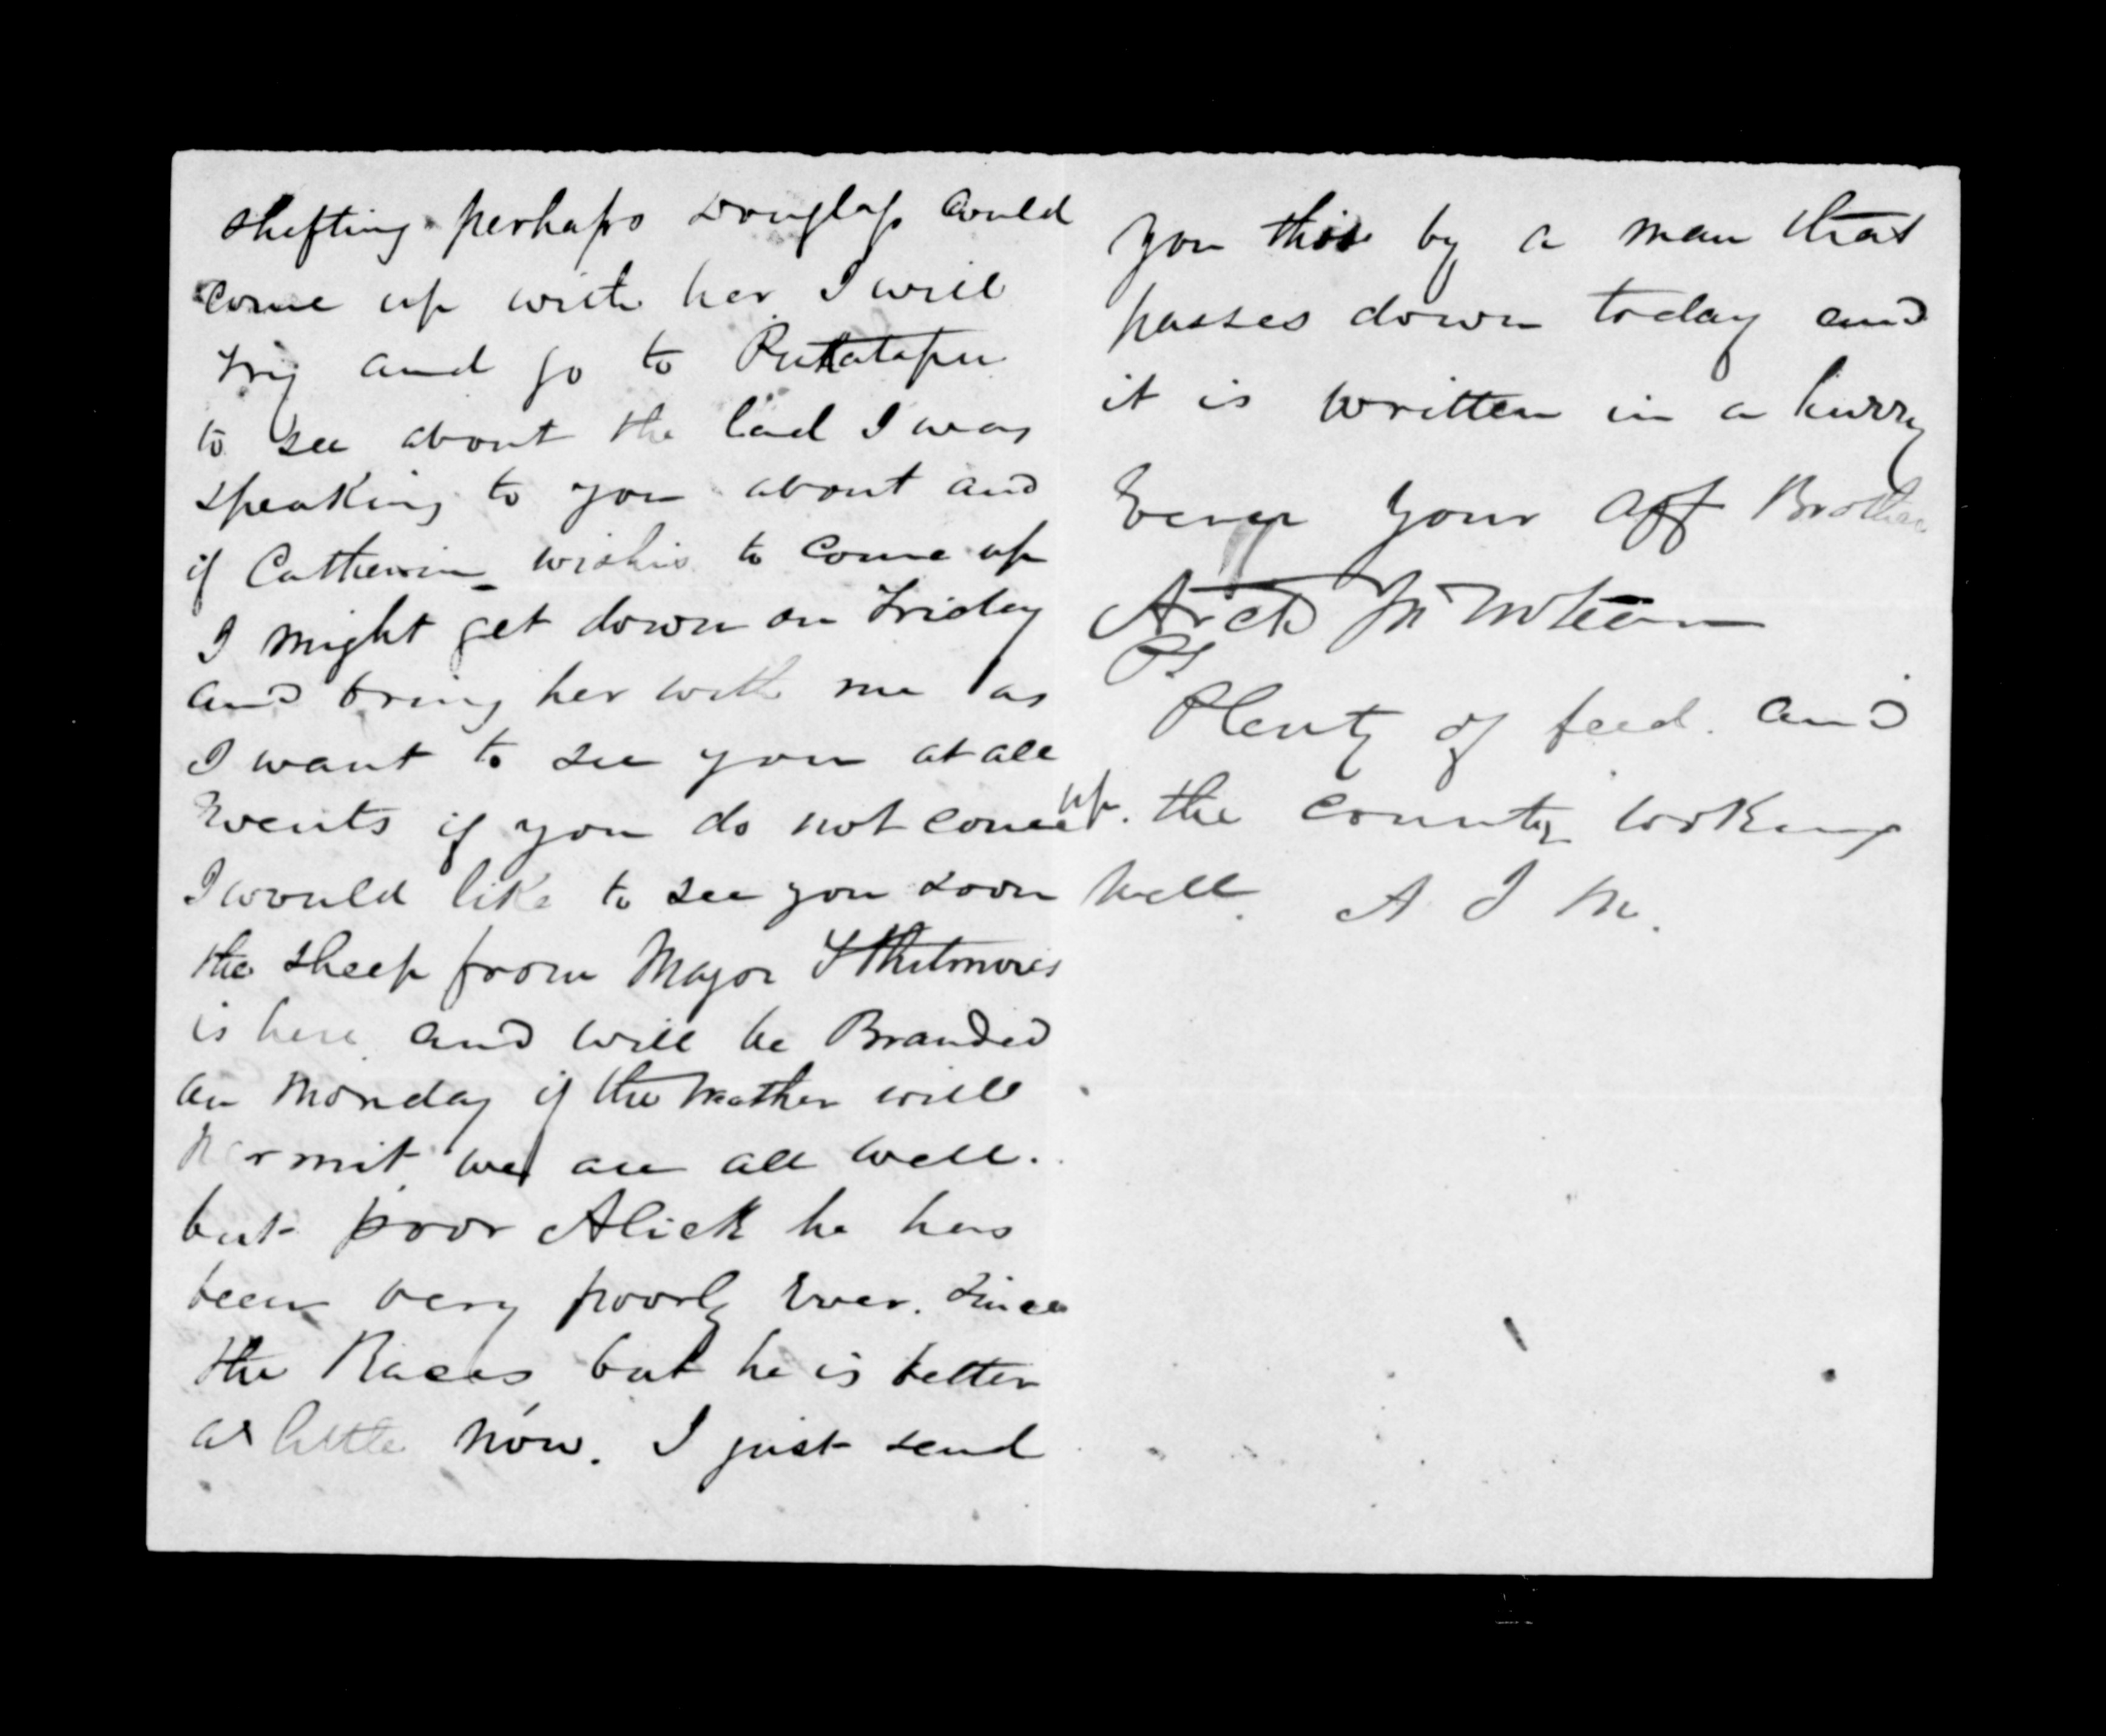 shifting perhaps Douglass could
come up with her I will
try and go to Rukatapu
to see about the lad I was
speaking to you about and
if Catherine wishes to come up
I might get down on Friday
and bring her with me as
I want to see you at all
Events if you do not come up.
I would like to see you soon
the sheep from Major Whitmores
is here and will be Branded
on Monday if the weather will
permit we are all well.
but poor Alick he has
been very poorly Ever. Since
the Races but he is better
a little now. I just send
you this by a man that
passes down today and
it is written in a hurry
Ever your aff Brother
Archd
PS
Plenty of feed. and
the county looking
well. A J M.